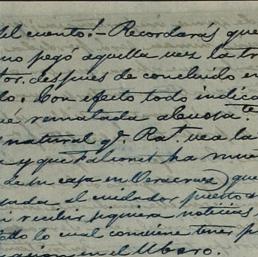 del cuento!- Recordarás que
no pegó aquella vez la tra
tor. despues de concluido en
lo. Con efecto todo indica
ué rematada
natural q. Rat. vea la
a y que Falconet ha mue
de su casa en Veracruz) que
cuidador puesto
recibir siquiera noticias,
todo lo cual conviene tener p
en el Ubero.